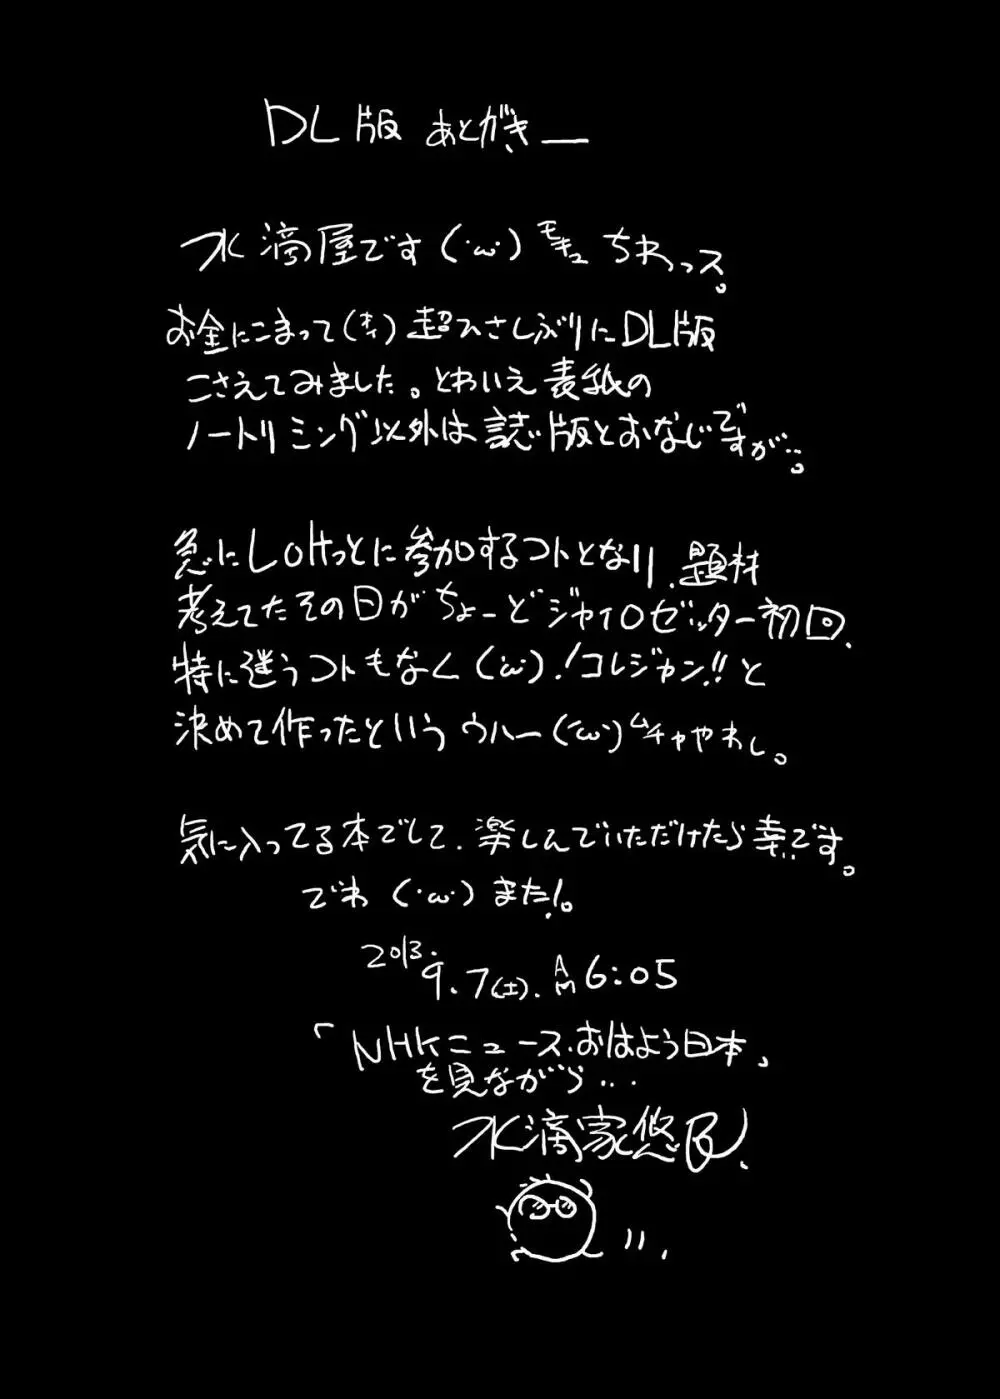 DL版 あとがきー
水滴屋です(・ω・)モキュ ちわっス。
お金にこまって(オイ)超ひさしぶりにDL版
こさえてみました。とわいえ表紙の
ノートリミング以外は誌版とおなじですが…。
急にLOHっとに参加するコトとなり、題材
考えてたその日がちょーどジャイロゼッター初回、
特に迷うコトもなく(・ω・)!コレジャン!!と
決めて作ったという ウハー(・ω・)ムチャやわし。
気に入ってる本でして、楽しんでいただけたら幸いです。
でわ (・ω・) また!。
2013.9.7(土).AM6:05
「NHKニュース、おはよう日本」
を見ながら…
水滴家悠